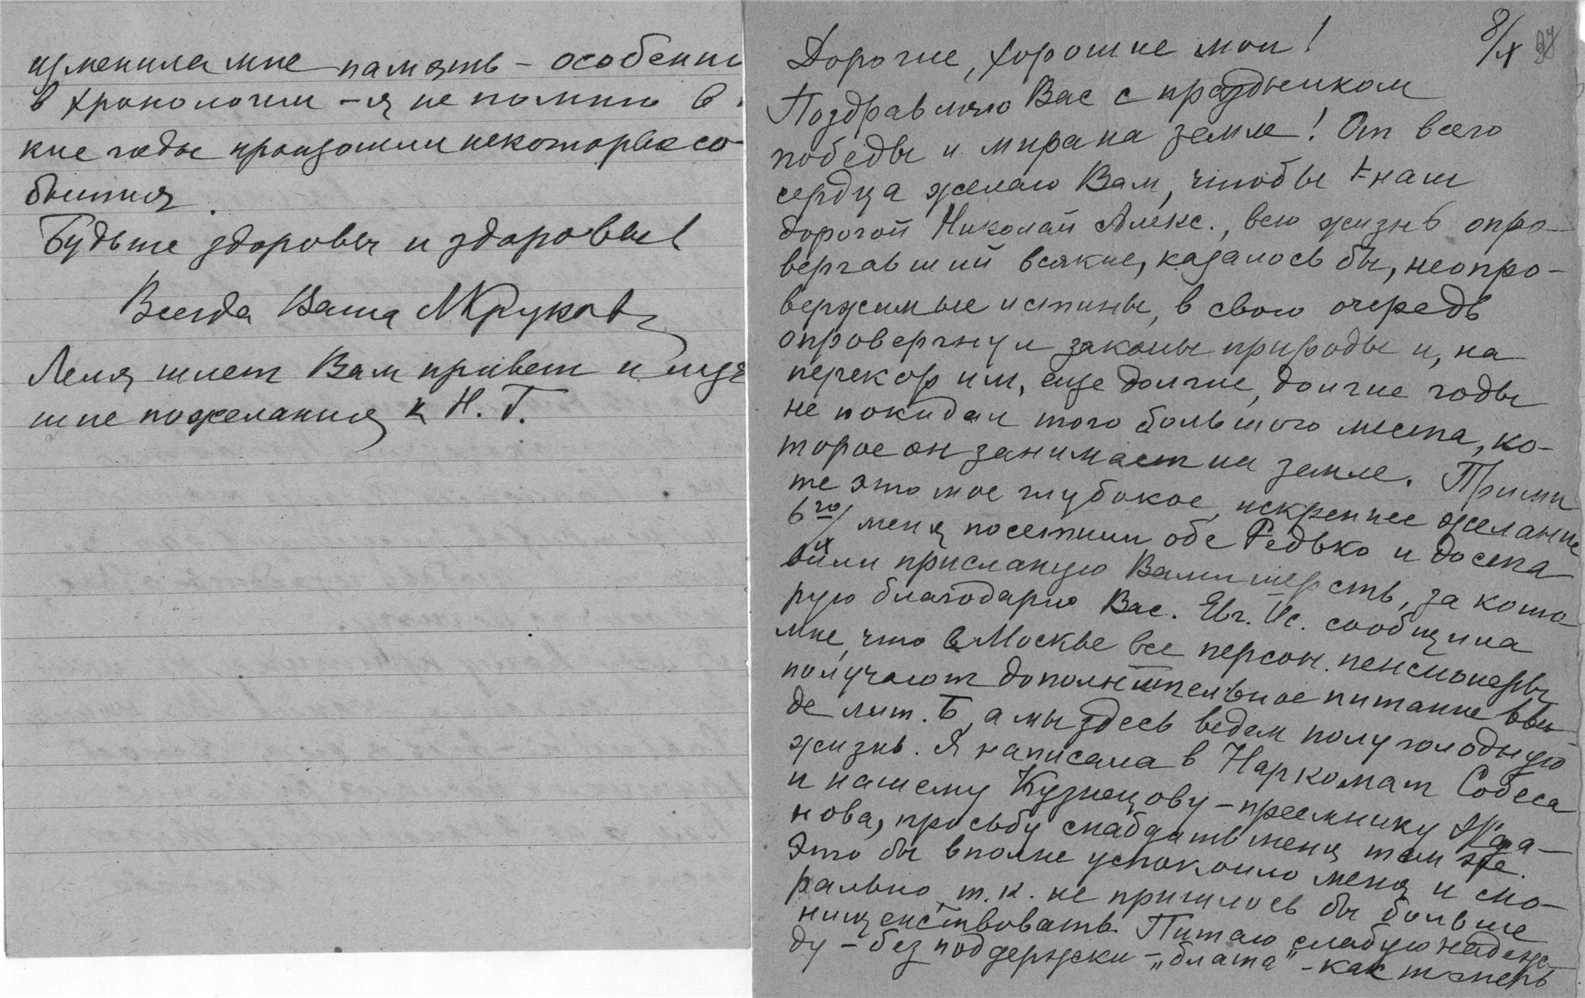 изменила мне память – особенно
в хронологии – я не помню в
кие годы произошли некоторые со
бытия.
Будьте здоровы и здоровы!
Всегда Ваша МКрукова
Леля шлет Вам привет и луч
шие пожелания к Н. Г.
8/X 24
Дорогие, хорошие мои!
Поздравляю Вас с праздником
победы и мира на земле! От всего
сердца желаю Вам, чтобы наш
дорогой Николай Алекс., всю жизнь опро-
вергавший всякие, казалось бы, неопро-
вержимые истины, в свою очередь
опровергнул законы природы и, на
перекор им, еще долгие, долгие годы
не покидал того большого места, ко-
торое он занимает на земле. Прими
те это мое глубокое, искреннее желание
6го/X меня посетили обе Редько и доста
вили присланую Вами шерсть, за кото
рую благодарю Вас. Евг. Ис. сообщила
мне, что в Москве все персон. пенсионеры
получают дополнительное питание в ви-
де лит. Б, а мы здесь ведем полуголодную
жизнь. Я написала в Наркомат Собеса
и нашему Кузнецову – преемнику Жда-
нова, просьбу снабдить меня тем же.
Это бы вполне успокоило меня и мо-
рально, т.к. не пришлось бы больше
нищенствовать. Питаю слабую надеж-
ду – без поддержки – „блата" – как теперь